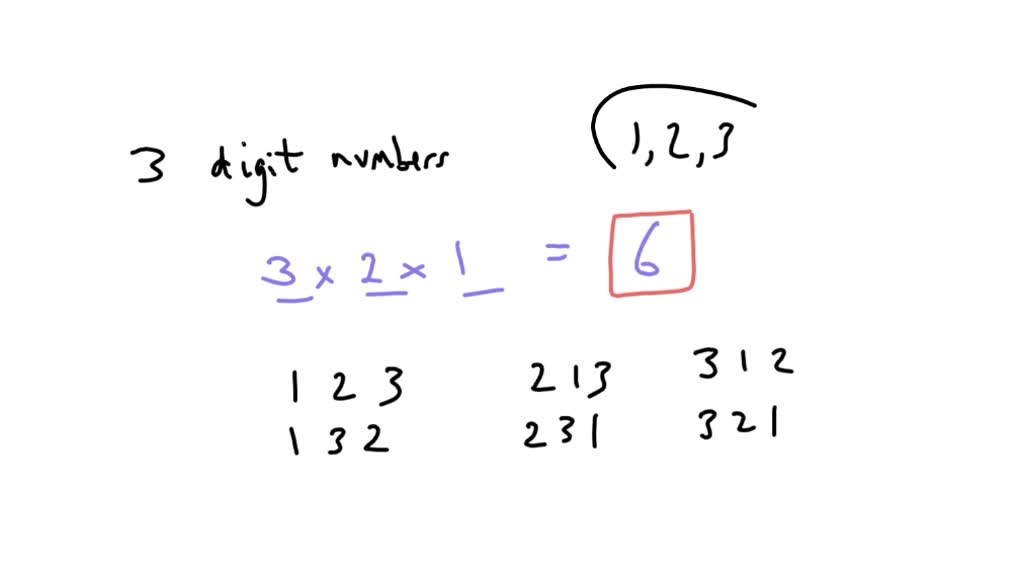 3 digit numbers 1, 2, 3
3 x 2 x 1 = 6
1 2 3 2 1 3 3 1 2
1 3 2 2 3 1 3 2 1